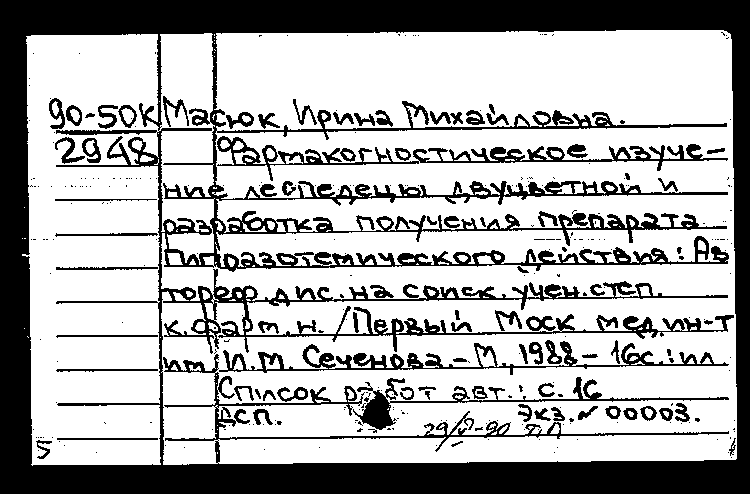 90-50К Масюк, Ирина Михайловна.
2948 Фармакогностическое изуче-
ние леспедецы двуцветной и
разработка получения препарата
гипоазотемического действия: Ав
тореф. дис. на соиск. учен. степ.
к. фарм. н. / Первый Моск мед. ин-т
им. И. М. Сеченова. - М., 1988. - 16с.: ил
Список работ авт.: с. 16
ДСП. Экз. № 00003.
5